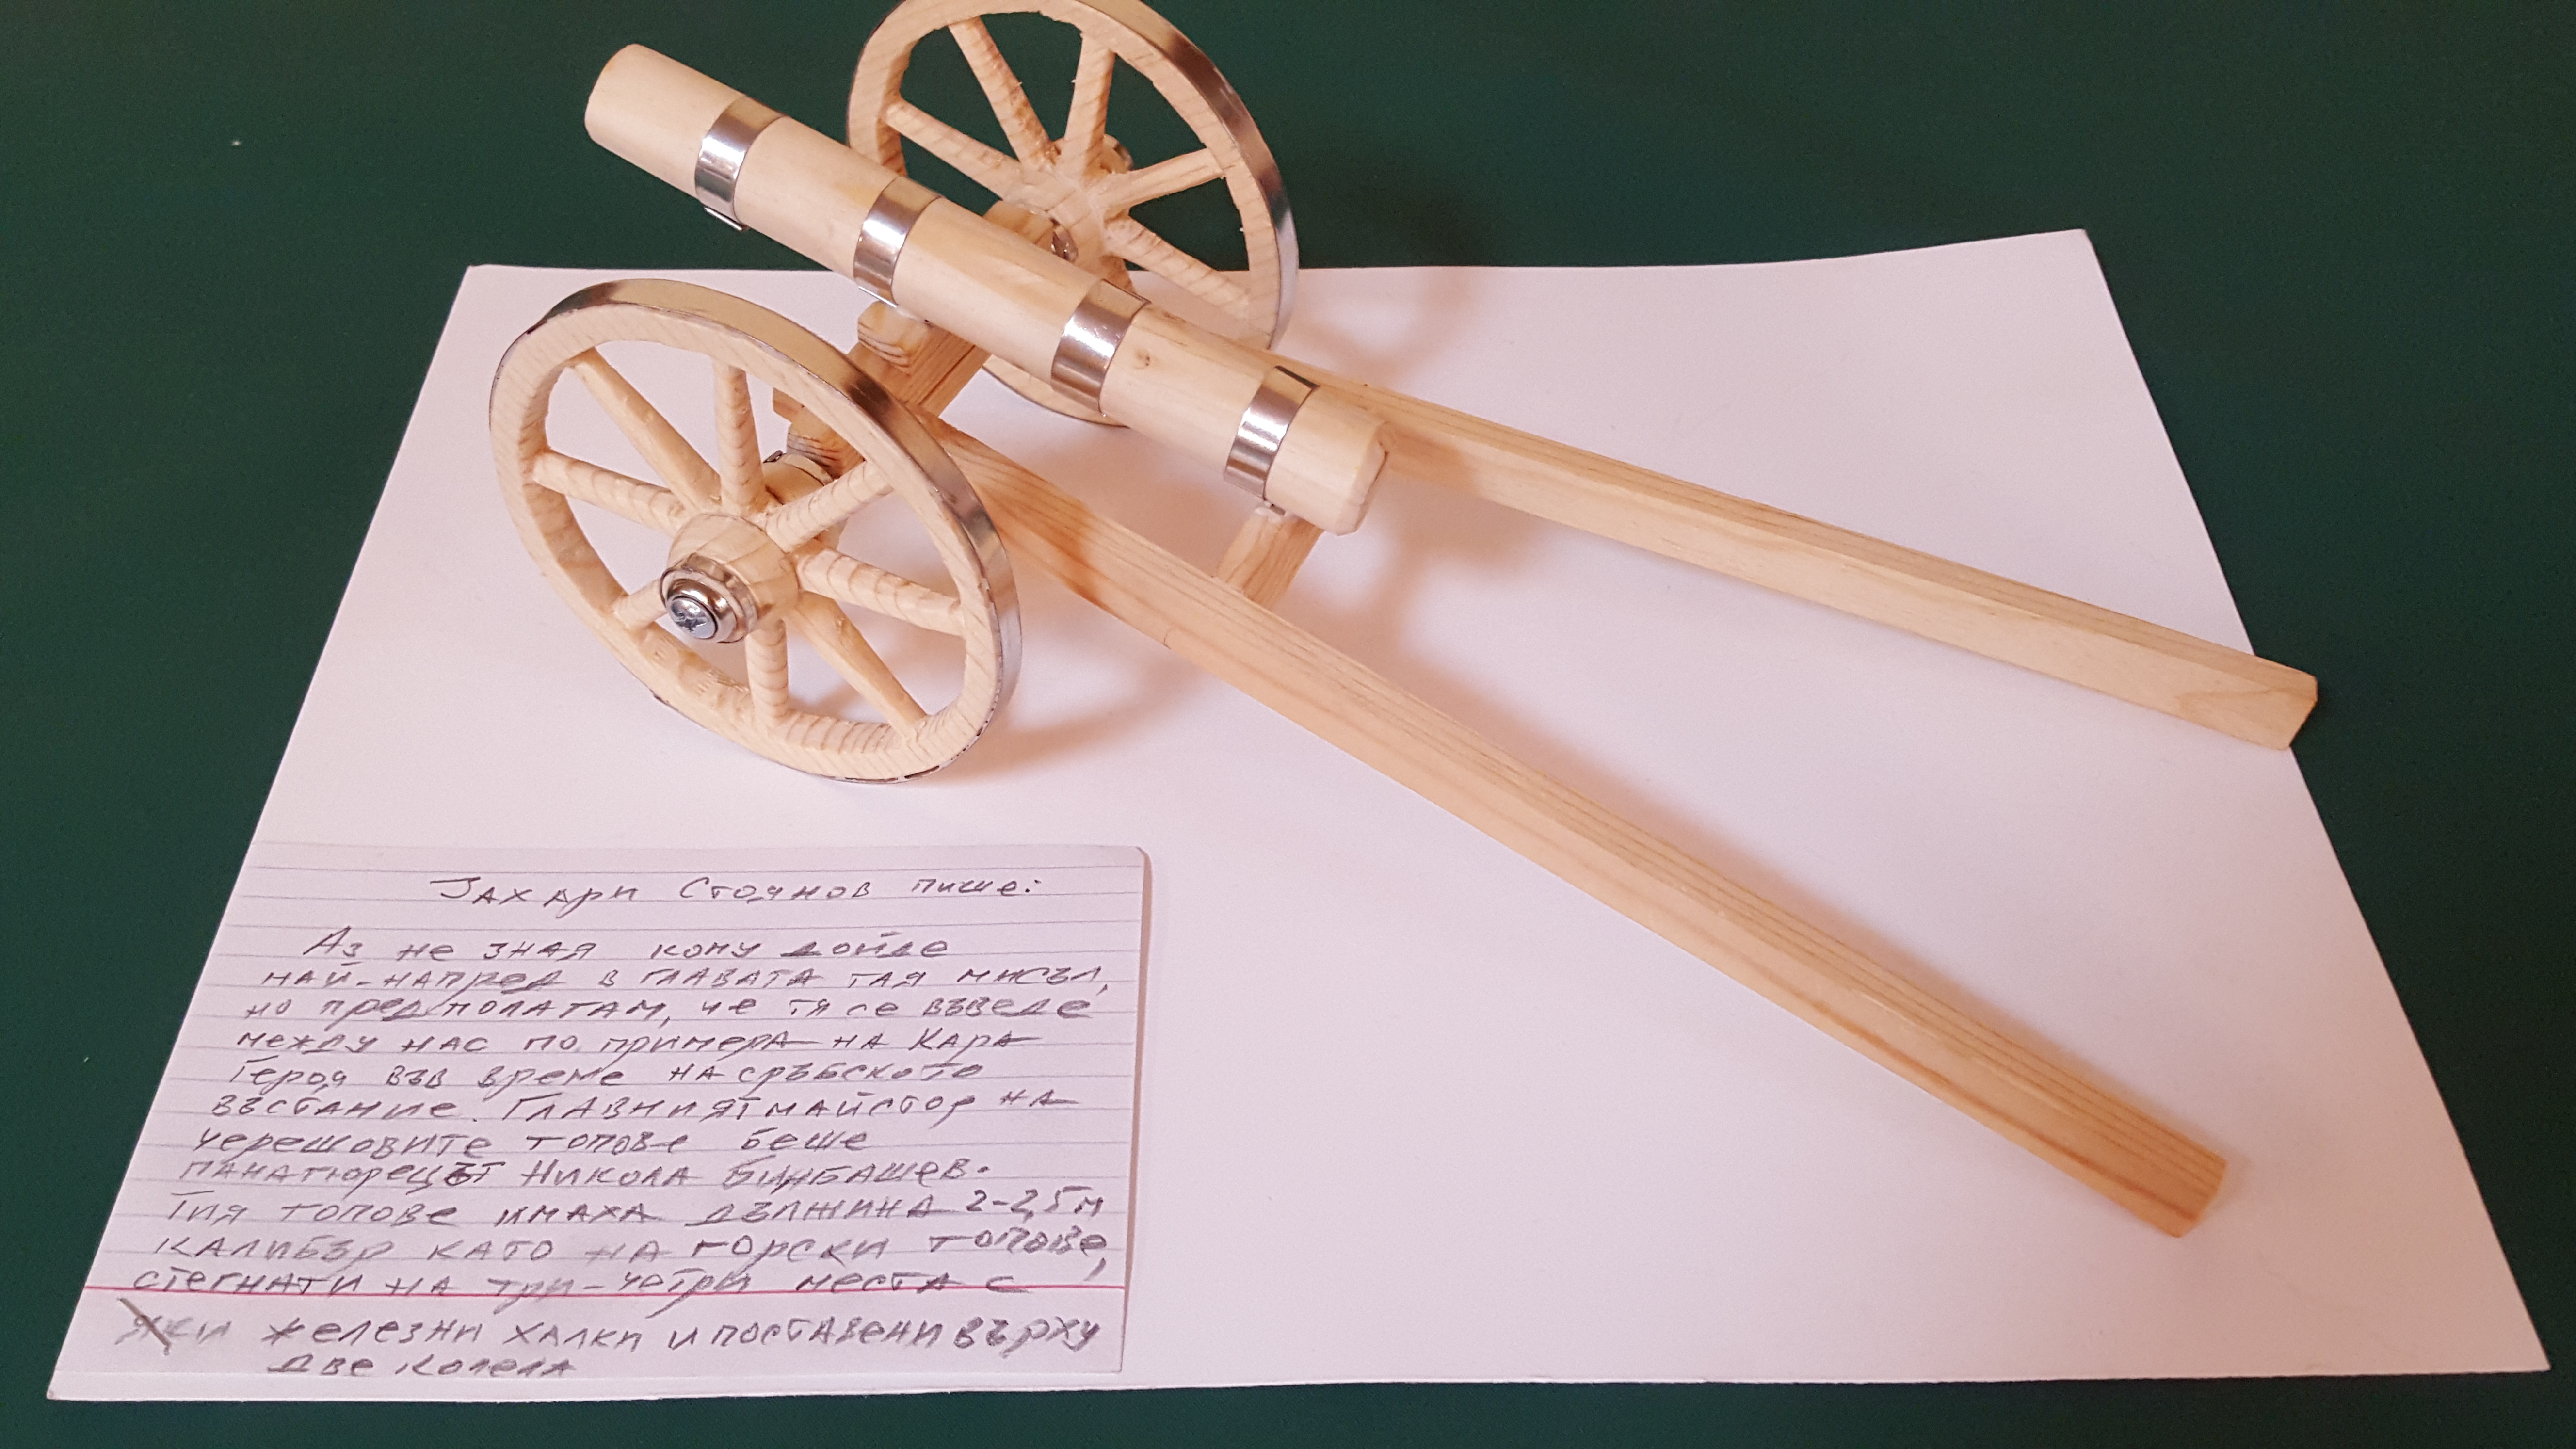 Захари Стоянов пише:
Аз не зная кому дойде
най-напред в главата тая мисъл,
но предполагам, че тя се въведе
между нас по примера на Кара
Героя във време на сръбското
въстание. Главният майстор на
черешовите топове беше
панагюрецът Никола Бинбашев.
Тия топове имаха дължина 2-2,5м
калибър като на горски топове,
стегнати на три-четри места с
яки железни халки и поставени върху
две колела